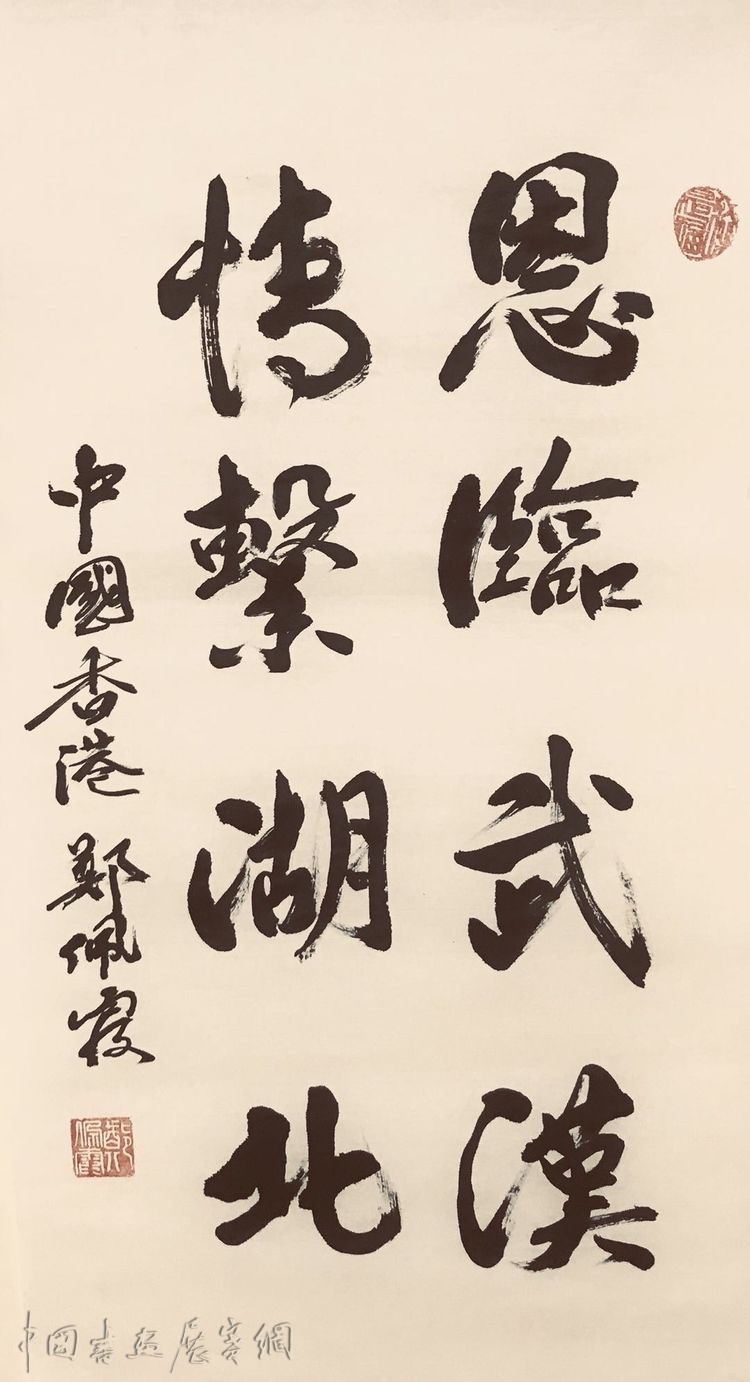 恩臨武漢
情繫湖北
中國香港 鄭佩霞
中国書画展賽網